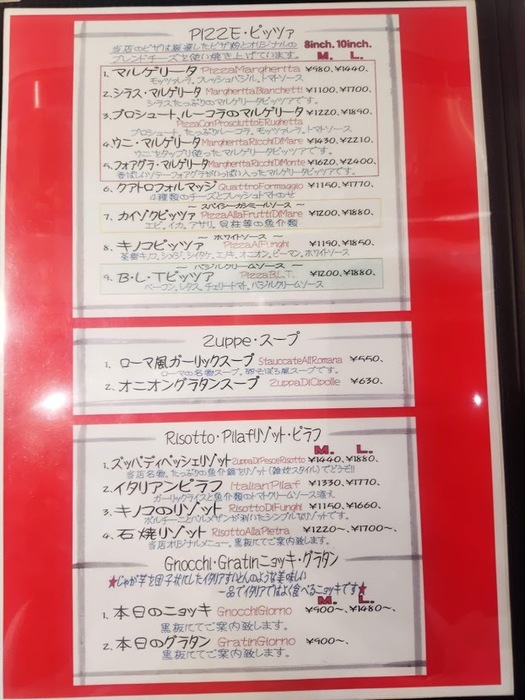 PIZZE・ピッツァ
当店のピザは厳選したピザ粉とオリジナルの
ブレンドチーズを使い焼き上げています。
8inch. 10inch.
M. L.
1. マルゲリータ PizzaMargheritta ¥980、¥1440.
モッツァレラ、フレッシュバジル、トマトソース
2. シラス・マルゲリータ MargheritaBianchetti ¥1100、¥1700.
シラスたっぷりのマルゲリータピッツァです。
3. プロシュート・ルーコラのマルゲリータ ¥1220、¥1890.
PizzaConProsciuttoERughetta
プロシュート、たっぷりルーコラ、モッツァレラ、トマトソース
4. ウニ・マルゲリータ MargheritaRicchiDiMare ¥1430、¥2210.
ウニをタップリ使ったマルゲリータピッツァです。
5. フォアグラ・マルゲリータ MargheritaRicchiDiMonte ¥1620、¥2400.
香ばしいソテーフォアグラがいっぱい入ったマルゲリータピッツァ
6. クアトロフォルマッジ QuattroFormaggio ¥1150、¥1770.
4種類のチーズとフレッシュトマトのせ
～ スパイシーガシミールソース ～
7. カイゾクピッツァ PizzaAllaFruttiDiMare ¥1200、¥1880.
エビ、イカ、アサリ、貝柱等の魚介類
～ ホワイトソース ～
8. キノコピッツァ PizzaAiFunghi ¥1190、¥1850.
茶樹キノコ、シメジ、シイタケ、エノキ、オニオン、ピーマン、ホワイトソース
～ バジルクリームソース ～
9. B・L・Tピッツァ PizzaB.L.T. ¥1200、¥1880.
ベーコン、レタス、チェリートマト、バジルクリームソース
Zuppe・スープ
1. ローマ風ガーリックスープ StauccateAllRomana ¥550.
ローマの名物スープ。卵そぼろ風スープです。
2. オニオングラタンスープ ZuppaDiCipolle ¥630.
Risotto・Pilafリゾット・ピラフ
M. L.
1. ズッパディペッシェリゾット ZuppaDiPesceRisotto ¥1440、¥1880.
当店名物、たっぷりの魚介鍋をリゾット(雑炊スタイル)でどうぞ!!
2. イタリアンピラフ ItalianPilaf ¥1330、¥1770.
ガーリックライスと魚介類のトマトクリームソース添え
3. キノコのリゾット RisottoDiFunghi ¥1150、¥1660.
ポルチーニとパルメザンが利いたシンプルなリゾットです。
4. 石焼リゾット RisottoAllaPietra ¥1220～、¥1700～、
当店オリジナルメニュー。黒板にてご案内致します。
Gnocchi・Gratinニョッキ・グラタン
★じゃが芋を団子状にしたイタリアすいとんのような美味しい
一品でイタリアではよく食べるニョッキです★
M. L.
1. 本日のニョッキ GnocchiGiorno ¥900～、¥1480～、
黒板にてご案内致します。
2. 本日のグラタン GratinGiorno ¥900～、
黒板にてご案内致します。